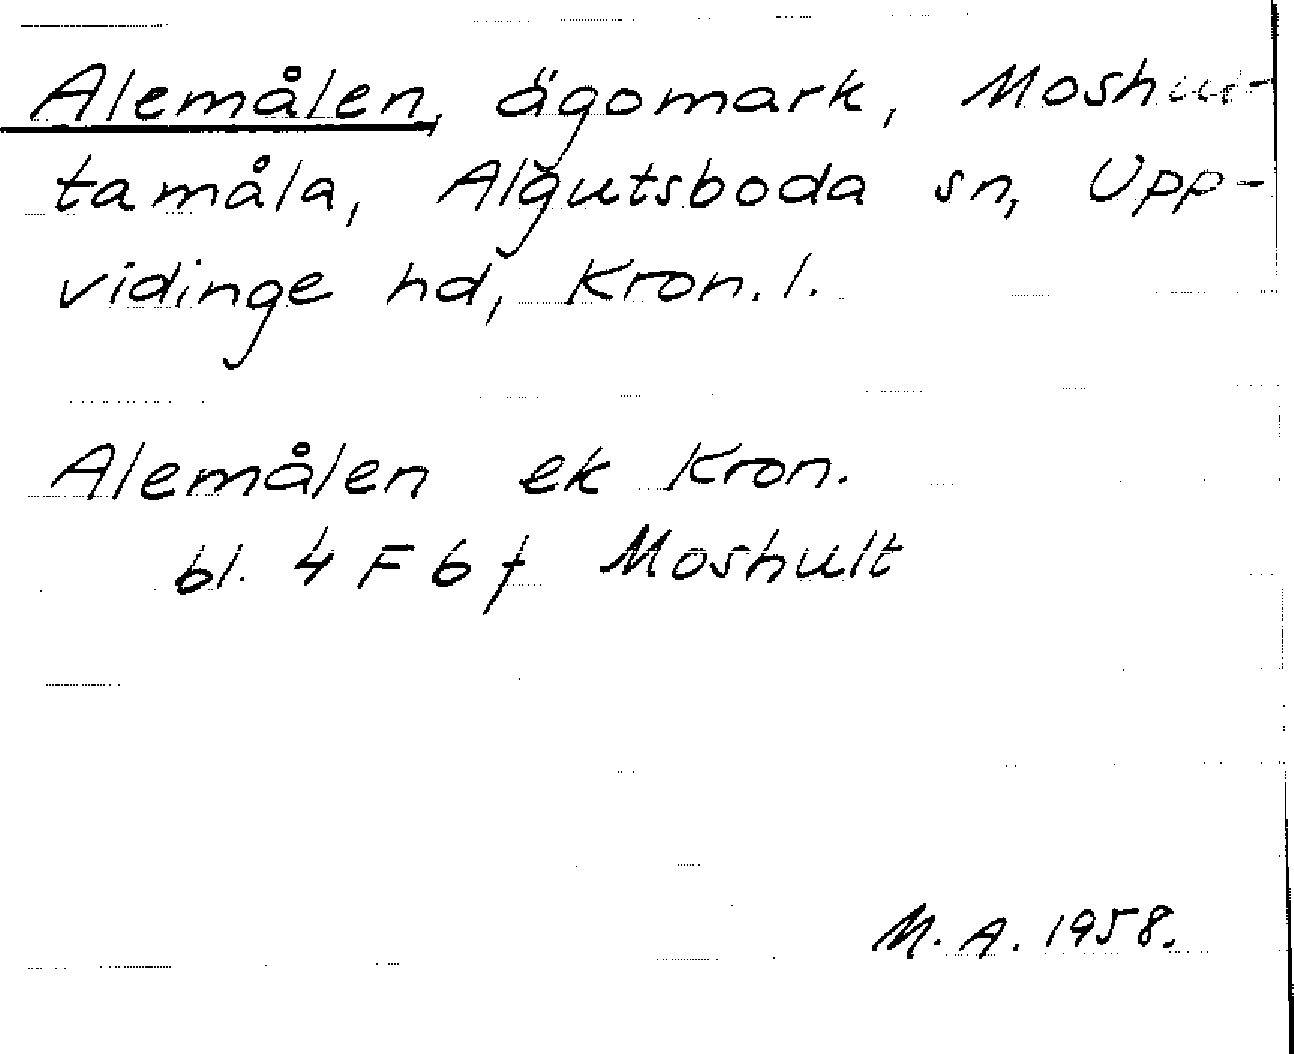 Alemålen, ägomark, Moshul-
tamåla, Algutsboda sn, Upp-
vidinge hd, Kron. l.
Alemålen ek Kron.
bl. 4 F 6 f Moshult
M. A. 1958.